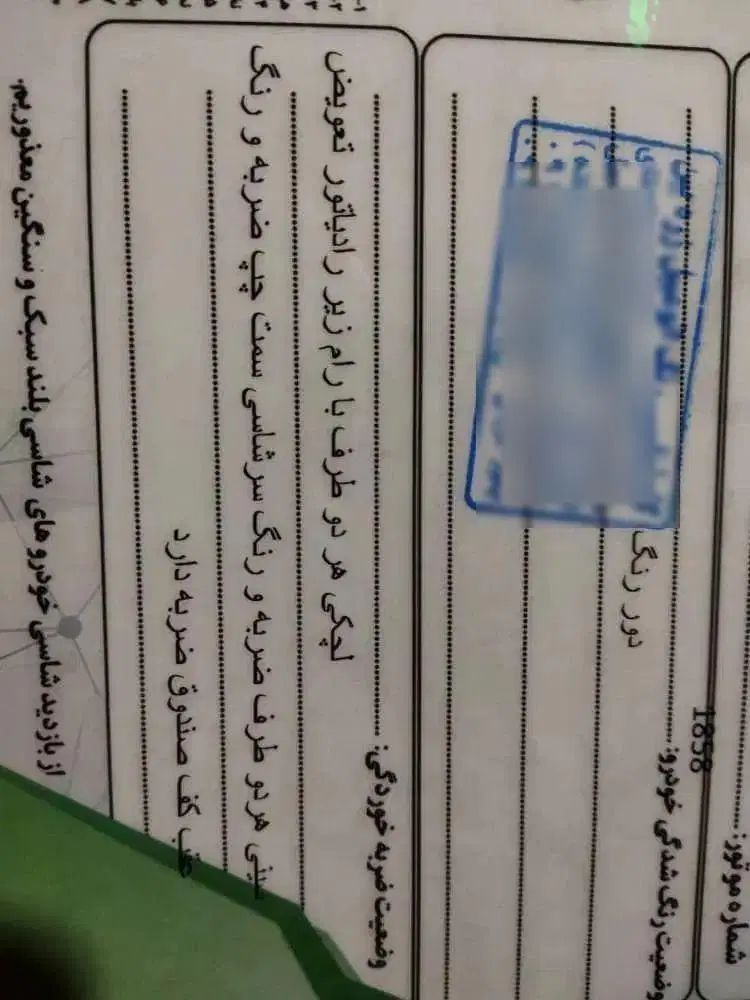 شماره موتور:
1858
وضعیت رنگ شدگی خودرو:
دور رنگ
وضعیت ضربه خوردگی:
لچکی هر دو طرف با رام زیر رادیاتور تعویض
سینی هر دو طرف ضربه و رنگ سر شاسی سمت چپ ضربه و رنگ
عقب کف صندوق ضربه دارد
از بازدید شاسی خودروهای شاسی بلند سبک و سنگین معذوریم.